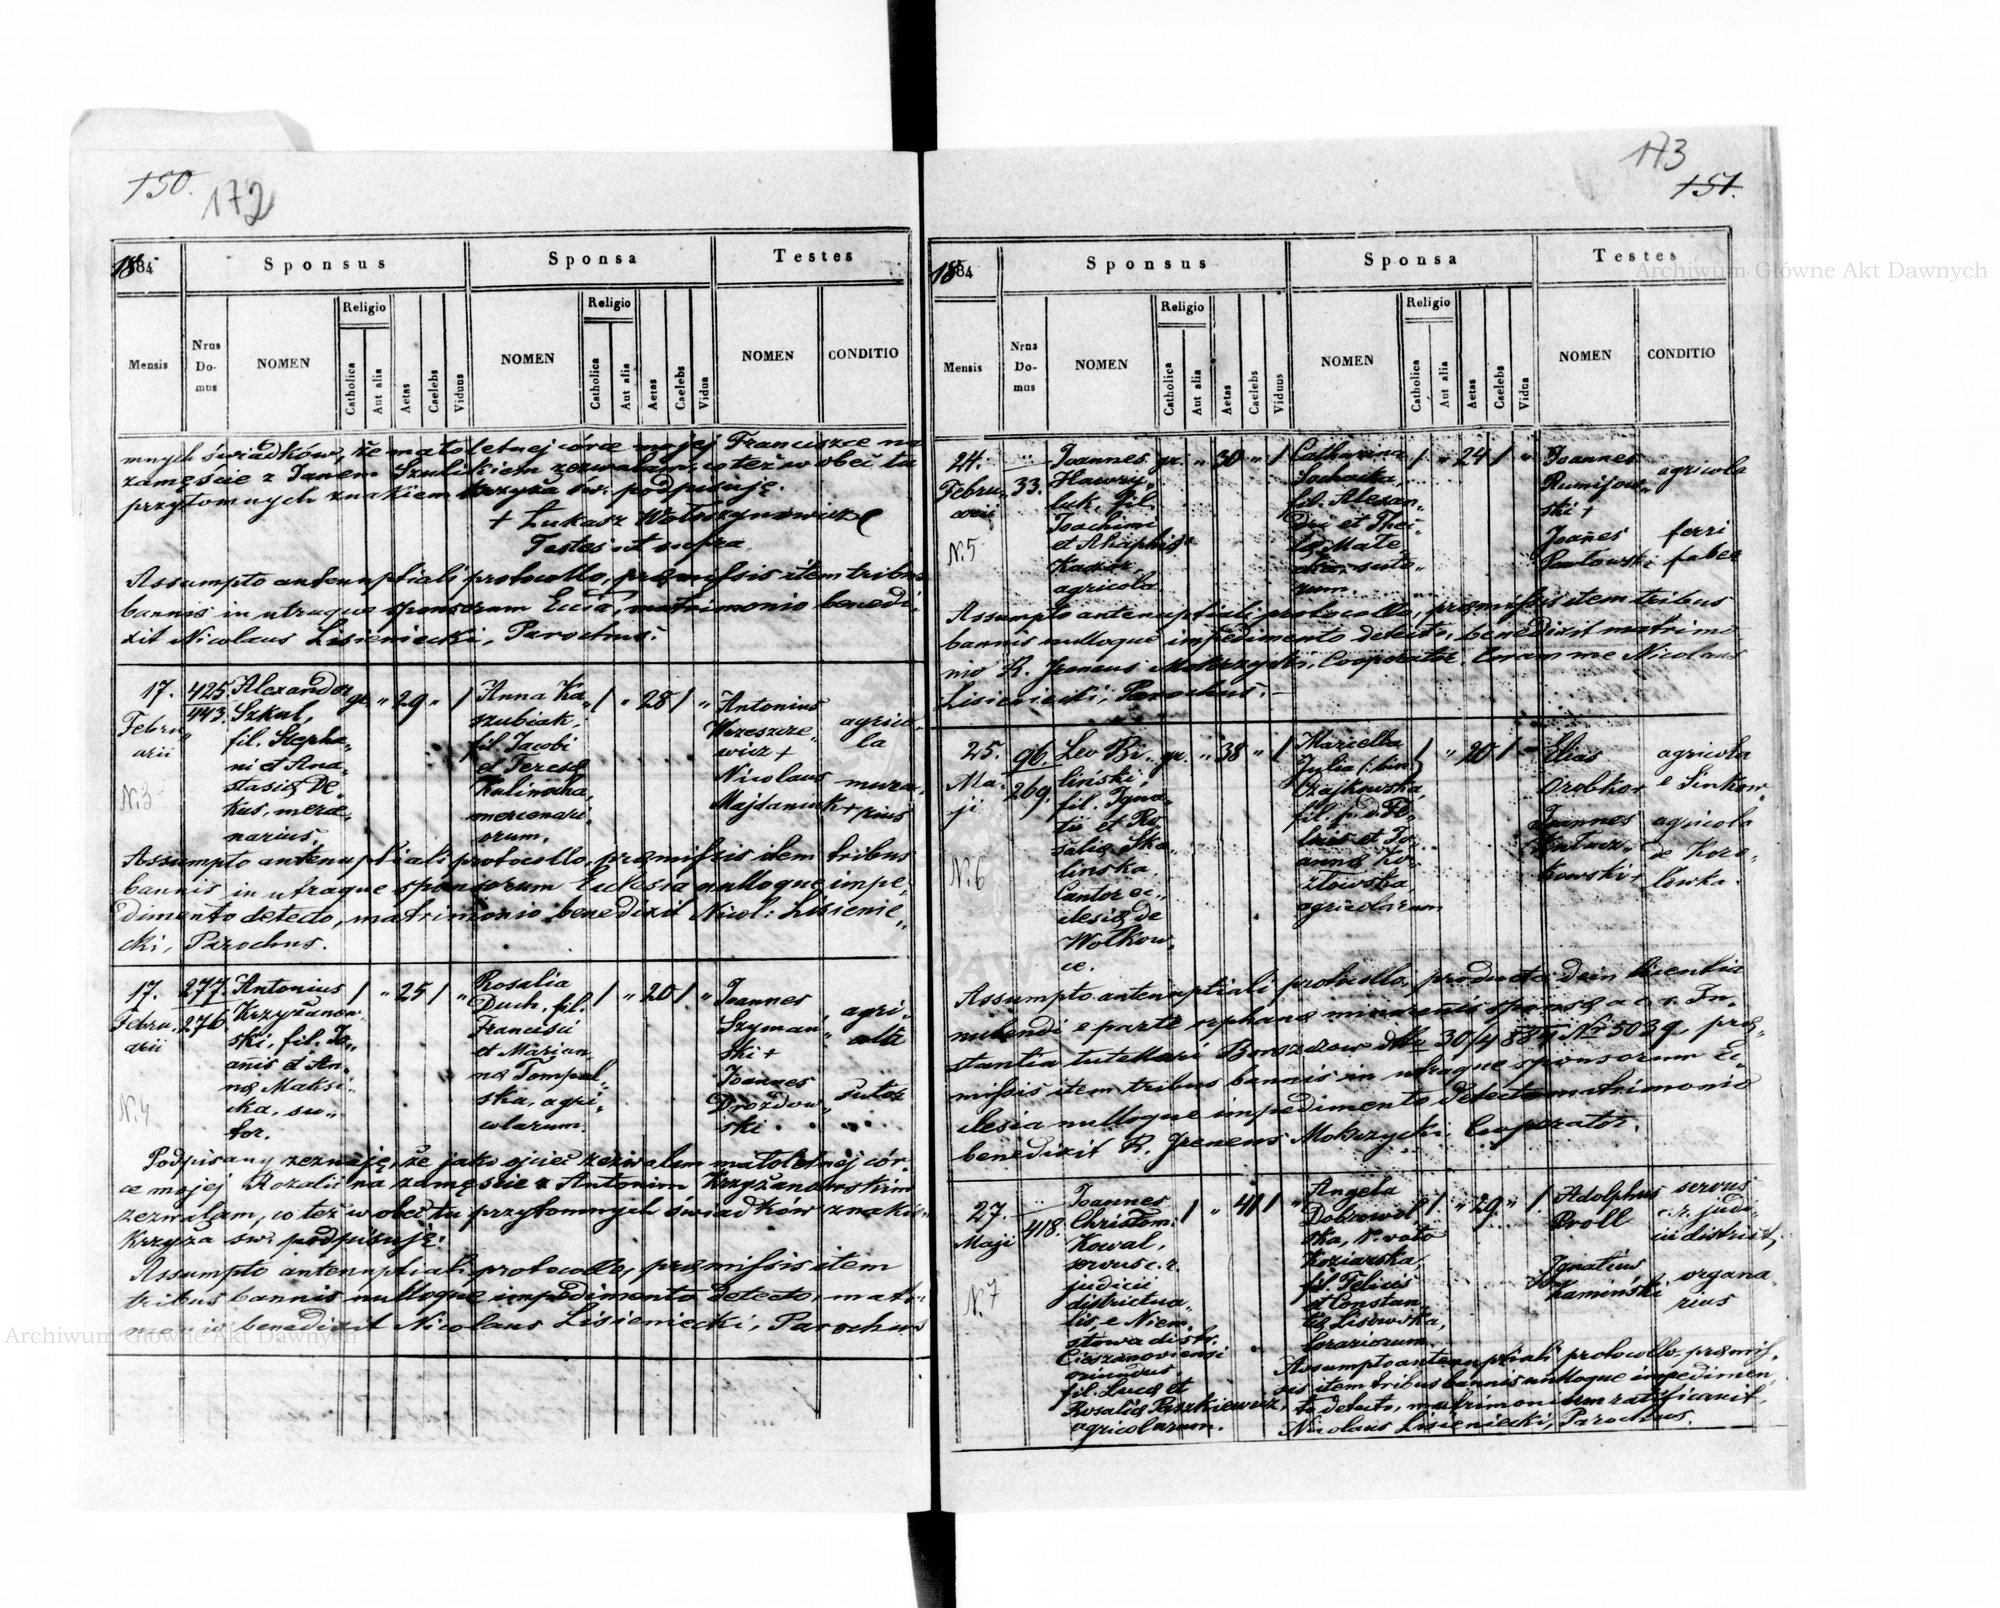 150.
172
1884
Sponsus
Sponsa
Testes
Mensis
Nrus Do-mus
NOMEN
Religio
Catholica
Aut alia
Aetas
Caelebs
Viduus
NOMEN
Religio
Catholica
Aut alia
Aetas
Caelebs
Vidua
NOMEN
CONDITIO
mnych świadków, że małoletnej córce mojej Franciszce na
zamęście z Janem Szulikiem zezwalam, co też w obec tu
przytomnych znakiem krzyża św. podpisuję.
+ Łukasz Wołoszynowicz
Testes ut supra
Assumpto antenuptiali protocollo, præmissis item tribus
bannis in utraque sponsorum Eccla, matrimonio benedi-
xit Nicolaus Lisieniecki, Parochus.
17.
Febru-
arii
N.3
425.
443.
Alexander
Szkul,
fil. Stepha-
ni et Ana-
stasiæ De-
kus, merce-
narius.
gr. " 29 " /
Anna Ka-
szubiak,
fil. Jacobi
et Teresæ
Kalinocha,
mercenari-
orum.
/ " 28 / "
Antonius
Wrzeszcze-
wicz +
Nicolaus
Majdaniuk +
agrico-
la
mura-
rius
Assumpto antenuptiali protocollo, præmissis item tribus
bannis in utraque sponsorum Ecclesia nulloque impe-
dimento detecto, matrimonio benedixit Nicol: Lisienie-
cki, Parochus.
17.
Febru-
arii
N.4
277.
276.
Antonius
Krzyżanow-
ski, fil. Jo-
anis et An-
næ Maksi-
cka, su-
tor.
/ " 25 / "
Rosalia
Duch, fil.
Francisci
et Marian-
næ Tompal-
ska, agri-
colarum.
/ " 20 / "
Joannes
Szyman-
ski +
Joannes
Drozdow-
ski
agri-
cola
sutor
Podpisany zeznaję, że jako ojciec zezwalam małoletnej cór-
ce mojej Rozalii na zamęście z Antonim Krzyżanowskim
zezwalam, co też w obec tu przytomnych świadków znakiem
Krzyża św. podpisuję:
Assumpto antenuptiali protocollo, præmissis item
tribus bannis nulloque impedimento detecto, matri-
monio benedixit Nicolaus Lisieniecki, Parochus
173
151.
1884
Sponsus
Sponsa
Testes
Mensis
Nrus Do-mus
NOMEN
Religio
Catholica
Aut alia
Aetas
Caelebs
Viduus
NOMEN
Religio
Catholica
Aut alia
Aetas
Caelebs
Vidua
NOMEN
CONDITIO
24.
Febru-
arii
N.5
33.
Joannes
Hawry-
luk, fil.
Joachimi
et Ahaphiæ
agricola
gr. " 30 " /
Catharina
fil. Alexan-
dri et The-
suto-
rum.
/ " 24 / "
Joannes
ski +
Joanes
Pawłowski
agricola
ferri
faber
Assumpto antenuptiali protocollo, præmissis item tribus
bannis nulloque impedimento detecto, benedixit matrimo-
nio R. Jreneus Mokrzycki, Cooperator. Coram me Nicolaus
Lisieniecki, Parochus.
25.
Ma-
ji
N.6
96.
269.
Leo Bi-
liński,
fil. Igna-
tii et Ro-
saliæ Ska-
linska,
Cantor ec-
clesiæ de
Wołkow-
ce.
gr. " 38 " /
Marcella
Julia (: bin:)
Czajkowska,
fil. p. d. Fe-
licis et Jo-
annæ Ko-
złowska,
agricolarum
/ " 20 / "
Elias
Orobko +
Joannes
kowski +
agricola
e Sinkow.
agricola
de Koro-
lowka.
Assumpto antenuptiali protocollo, producta dein licentia
nubendi e parte orphanæ minorenis sponsæ a c. r. In-
stantia tutelari Borszczow ddto 30/4 884 Nr 5039, præ-
missis item tribus bannis in utraque sponsorum Ec-
clesia nulloque impedimento detecto matrimonio
benedixit R. Jreneus Mokrzycki Cooperator.
27.
Maji
N.7
418.
Joannes
Christom.
Kowal,
servus c. r.
judicii
districtua-
lis, e Niem-
stowa distr.
Cieszanoviensi
oriundus
fil. Lucæ et
Rosaliæ Paszkiewicz,
agricolarum.
/ " 41 / "
Angela
Dobrowol-
ska, 1° voto
Koziarska,
fil. Felicis
et Constan-
tiæ Lisowska,
/ " 29 " /
Adolphus
Droll
Ignatius
Kamiński
servus
c. r. judi-
cii district,
organa-
rius
Assumpto antenuptiali protocollo, præmis-
sis item tribus bannis nulloque impedimen-
to detecto, matrimonium ratificavit,
Nicolaus Lisieniecki, Parochus.
Archiwum Główne Akt Dawnych
Archiwum Główne Akt Dawnych